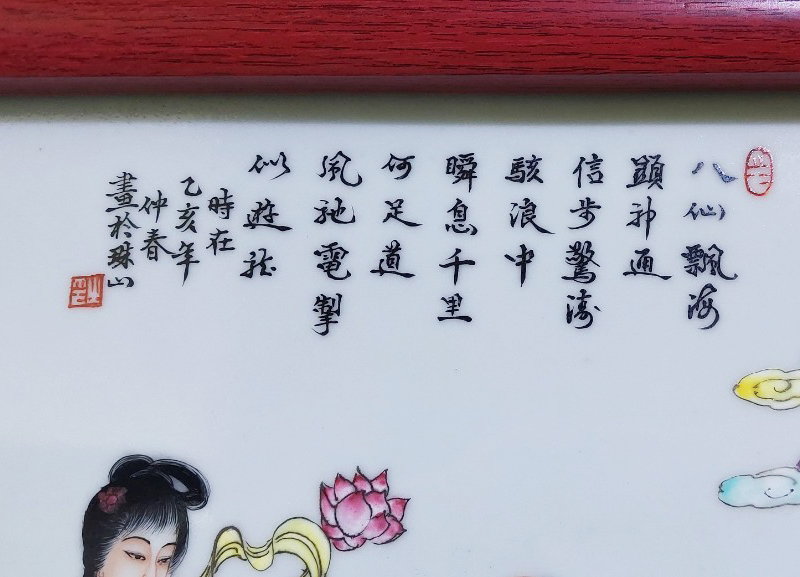 八仙飄海
顕神通
信步驚濤
駭浪中
瞬息千里
何足道
風馳電掣
似遊龍
時在
乙亥年
仲春
畫於珠山